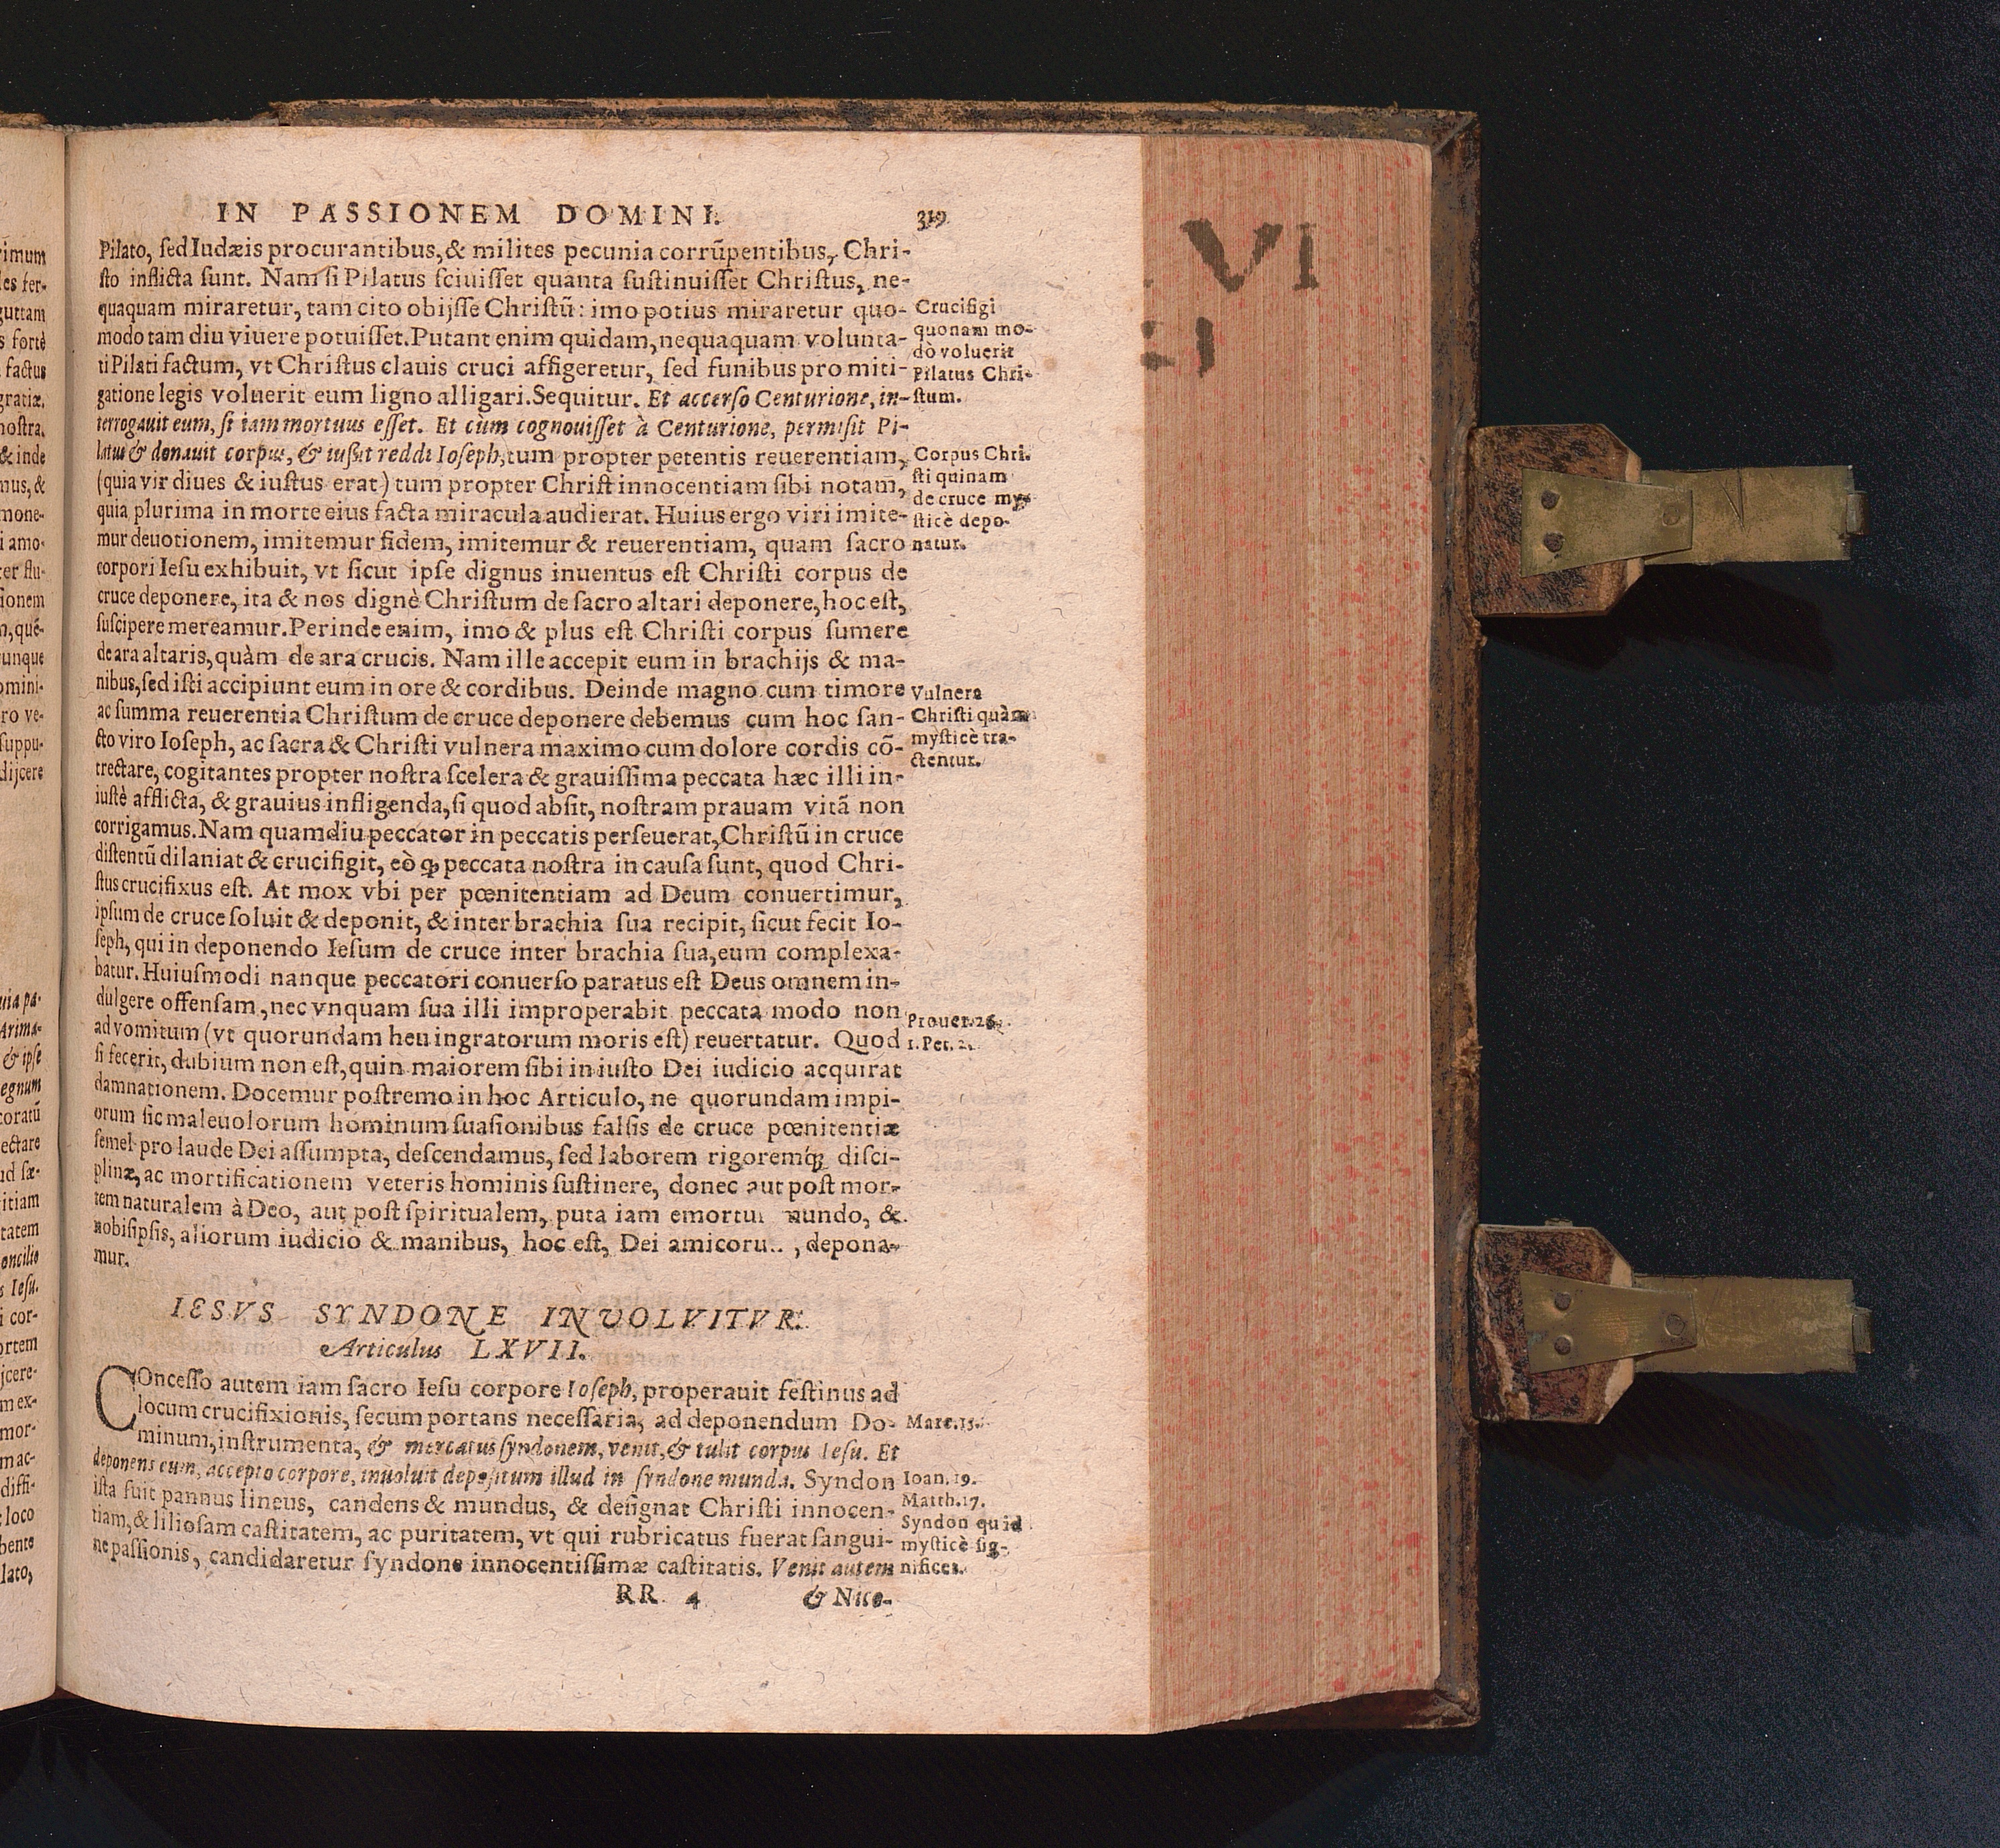 IN PASSIONEM DOMINI. 319
Pilato, sed Iudæis procurantibus, & milites pecunia corrũpentibus, Chri-
sto inflicta sunt. Nam si Pilatus sciuisset quanta sustinuisset Christus, ne-
quaquam miraretur, tam cito obijsse Christũ: imo potius miraretur quo-
modo tam diu viuere potuisset. Putant enim quidam, nequaquam volunta-
ti Pilati factum, vt Christus clauis cruci affigeretur, sed funibus pro miti-
gatione legis voluerit eum ligno alligari. Sequitur. Et accerso Centurione, in-
terrogauit eum, si iam mortuus esset. Et cùm cognouisset à Centurione, permisit Pi-
latus & donauit corpus, & iussit reddi Ioseph, tum propter petentis reuerentiam,
(quia vir diues & iustus erat) tum propter Christ innocentiam sibi notam,
quia plurima in morte eius facta miracula audierat. Huius ergo viri imite-
mur deuotionem, imitemur fidem, imitemur & reuerentiam, quam sacro
corpori Iesu exhibuit, vt sicut ipse dignus inuentus est Christi corpus de
cruce deponere, ita & nos dignè Christum de sacro altari deponere, hoc est,
suscipere mereamur. Perinde enim, imo & plus est Christi corpus sumere
de ara altaris, quàm de ara crucis. Nam ille accepit eum in brachijs & ma-
nibus, sed isti accipiunt eum in ore & cordibus. Deinde magno cum timore
ac summa reuerentia Christum de cruce deponere debemus cum hoc san-
cto viro Ioseph, ac sacra & Christi vulnera maximo cum dolore cordis cõ-
trectare, cogitantes propter nostra scelera & grauissima peccata hæc illi in-
iustè afflicta, & grauius infligenda, si quod absit, nostram prauam vitã non
corrigamus. Nam quamdiu peccator in peccatis perseuerat, Christũ in cruce
distentũ dilaniat & crucifigit, eò ꝙ peccata nostra in causa sunt, quod Chri-
stus crucifixus est. At mox vbi per pœnitentiam ad Deum conuertimur,
ipsum de cruce soluit & deponit, & inter brachia sua recipit, sicut fecit Io-
seph, qui in deponendo Iesum de cruce inter brachia sua, eum complexa-
batur. Huiusmodi nanque peccatori conuerso paratus est Deus omnem in-
dulgere offensam, nec vnquam sua illi improperabit peccata modo non
ad vomitum (vt quorundam heu ingratorum moris est) reuertatur. Quod
si fecerit, dubium non est, quin maiorem sibi in iusto Dei iudicio acquirat
damnationem. Docemur postremo in hoc Articulo, ne quorundam impi-
orum sic maleuolorum hominum suasionibus falsis de cruce pœnitentiæ
semel pro laude Dei assumpta, descendamus, sed laborem rigoremq́; disci-
plinæ, ac mortificationem veteris hominis sustinere, donec aut post mor-
tem naturalem à Deo, aut post spiritualem, puta iam emortui mundo, &
nobisipsis, aliorum iudicio & manibus, hoc est, Dei amicoru.. , depona-
mur.
Crucifigi
quonam mo-
dò voluerit
Pilatus Chri-
stum.
Corpus Chri-
sti quinam
de cruce my-
sticè depo-
natur.
Vulnera
Christi quàm
mysticè tra-
ctentur.
Prouer. 26.
1. Pet. 2.
IESVS SYNDONE INVOLVITVR.
Articulus LXVII.
COncesso autem iam sacro Iesu corpore Ioseph, properauit festinus ad
locum crucifixionis, secum portans necessaria, ad deponendum Do-
minum, instrumenta, & mercatus syndonem, venit, & tulit corpus Iesu. Et
deponens eum, accepto corpore, inuoluit depositum illud in syndone munda. Syndon
ista fuit pannus lineus, candens & mundus, & designat Christi innocen-
tiam, & liliosam castitatem, ac puritatem, vt qui rubricatus fuerat sangui-
ne passionis, candidaretur syndone innocentissimæ castitatis. Venit autem
Marc. 15.
Ioan. 19.
Matth. 27.
Syndon quid
mysticè sig-
nificet.
RR 4 & Nico-
VI